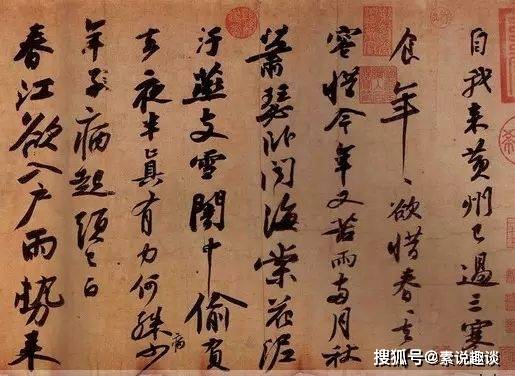 自我來黃州已過三寒
食年〻欲惜春〻去
容惜今年又苦雨兩月秋
蕭瑟卧聞海棠花泥
汙燕支雪闇中偷負
去夜半真有力何殊少
病
年子病起須已白
春江欲入戶雨勢來
搜狐号@素说趣谈